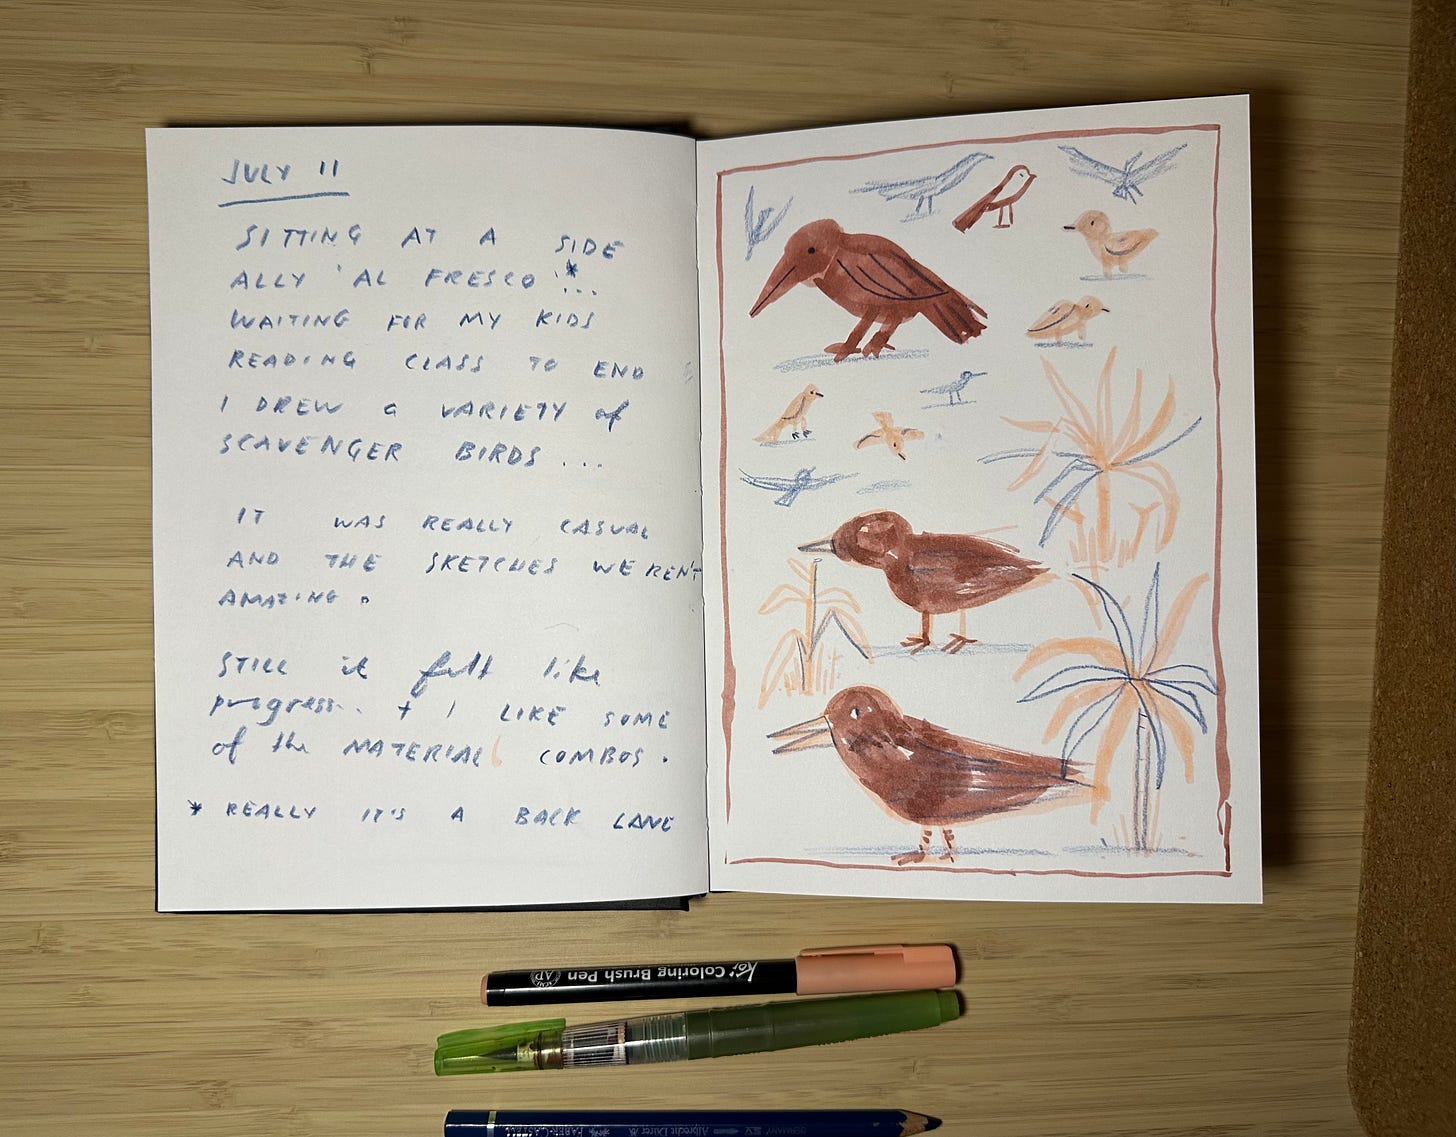 JULY 11
SITTING AT A SIDE
ALLY 'AL FRESCO'*...
WAITING FOR MY KIDS
READING CLASS TO END
I DREW a VARIETY of
SCAVENGER BIRDS ...
IT WAS REALLY CASUAL
AND THE SKETCHES WEREN'T
AMAZING.
STILL it felt like
progress.. + I LIKE SOME
of the MATERIAL COMBOS.
* REALLY IT'S A BACK LANE
Koi Coloring Brush Pen
AP
GERMANY Albrecht Dürer FABER-CASTELL